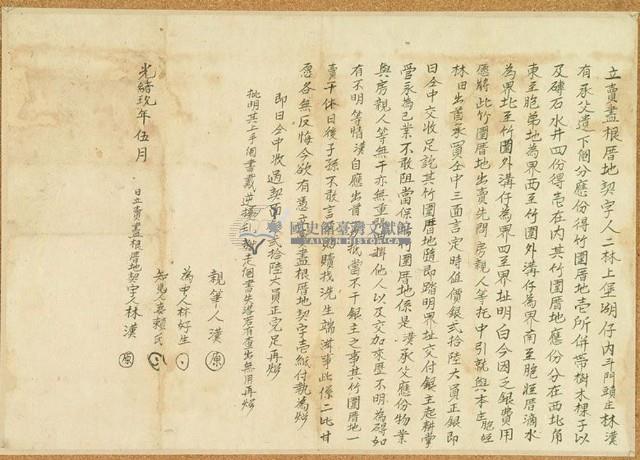 立賣盡根厝地契字人二林上堡湖仔內斗門頭庄林漢
有承父遺下鬮分應份得竹圍厝地壹所併帶樹木棵子以
及磚石水井四份得壹在內其竹圍厝地應份分在西北角
東至胞弟地為界西至竹圍外溝仔為界南至胞姪厝滴水
為界北至竹圍外溝仔為界四至界址明白今因乏銀費用
愿將此竹圍厝地出賣先問房親人等托中引就與本庄胞姪
林田出首承買仝中三面言定時值價銀貳拾陸大員正銀即
日仝中交收足訖其竹圍厝地隨即踏明界址交付銀主起耕掌
管永為己業不敢阻當保此竹圍厝地係是漢承父應份物業
與房親人等無干亦無重張典掛他人以及交加來歷不明為碍如
有不明等情漢自應出首抵當不干銀主之事其竹圍厝地一
賣千休日後子孫不敢言及贖找洗生端滋事此係二比甘
愿各無反悔今欲有憑立賣盡根厝地契字壹紙付執為炤
即日仝中收過契面銀貳拾陸大員正完足再炤
批明其上手鬮書失落若有查出無用再炤
親筆人漢 原
為中人林好生
知見人妻賴氏
光緒玖年伍月 日立賣盡根厝地契字人林漢 原
國史館臺灣文獻館
TAIWAN HISTORICA